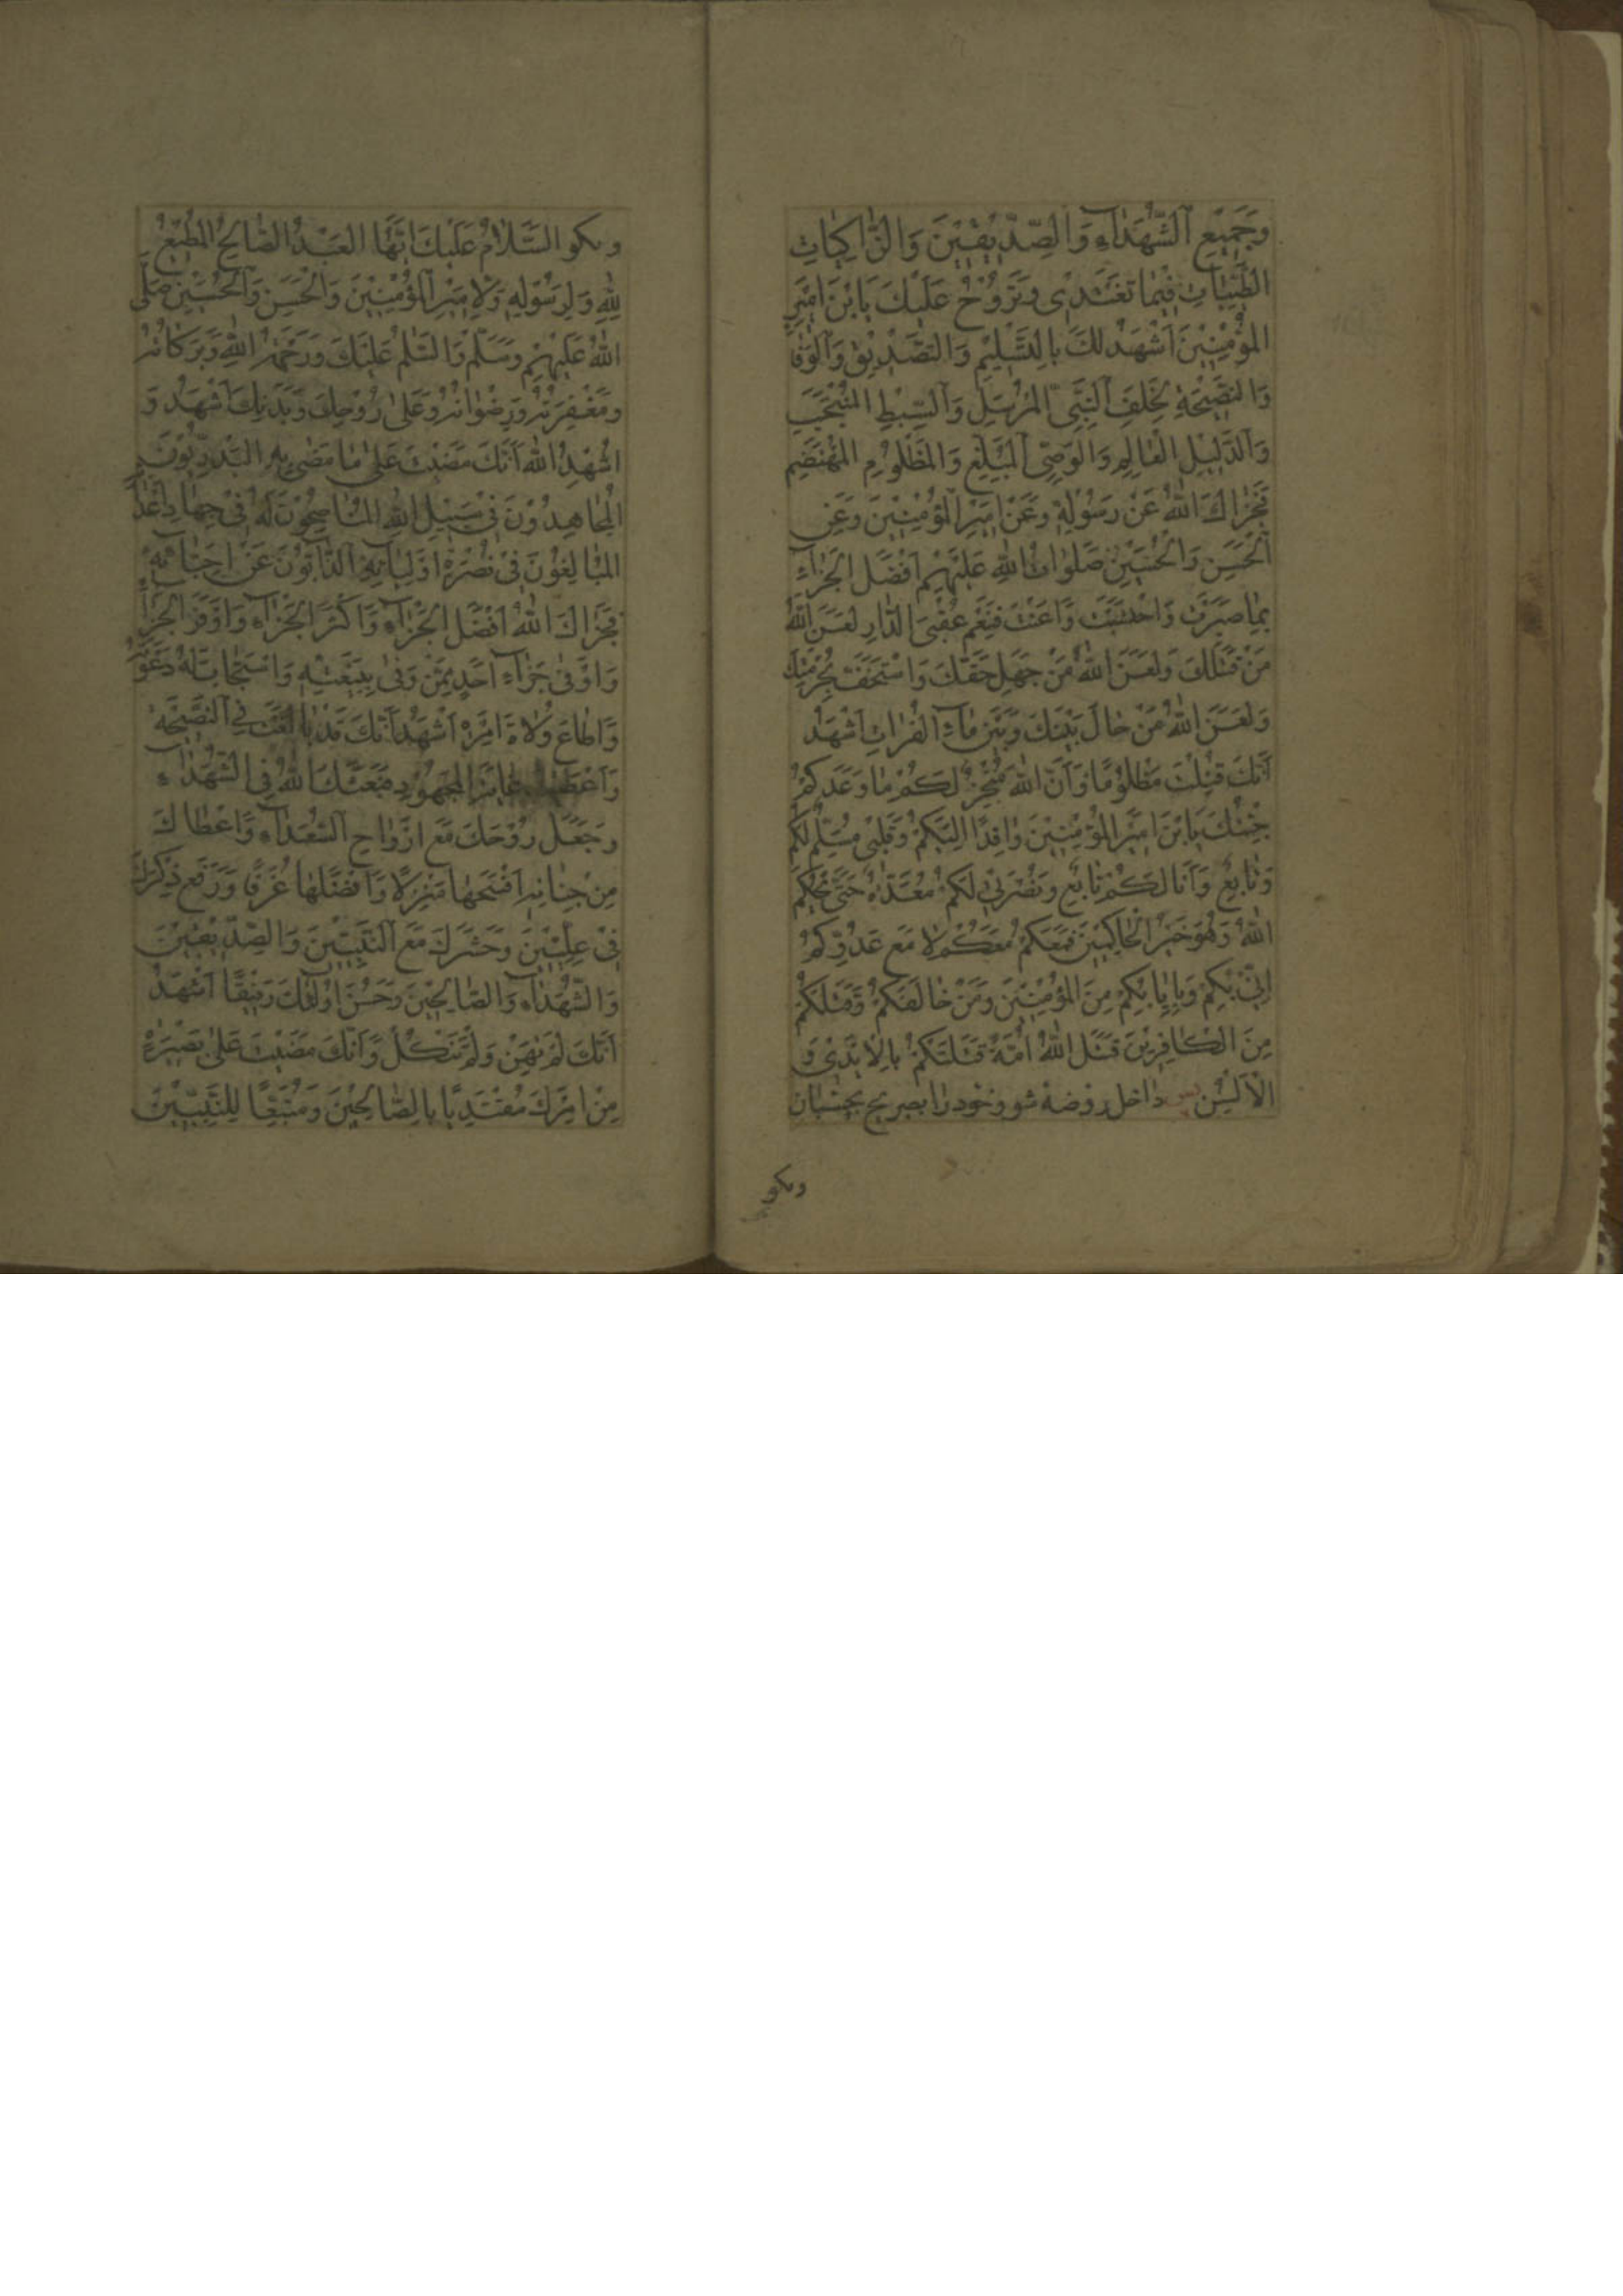 وَجَمِيعِ الشُّهَدَاءِ وَالصِّدِّيقِينَ وَالزَّاكِيَاتِ
الطَّيِّبَاتِ فِيمَا تَغْتَدِي وَتَرُوحُ عَلَيْكَ يَا بْنَ أَمِيرِ
الْمُؤْمِنِينَ أَشْهَدُ لَكَ بِالتَّسْلِيمِ وَالتَّصْدِيقِ وَالْوَفَاءِ
وَالنَّصِيحَةِ لِخَلَفِ النَّبِيِّ الْمُرْسَلِ وَالسِّبْطِ الْمُنْتَجَبِ
وَالدَّلِيلِ الْعَالِمِ وَالْوَصِيِّ الْمُبَلِّغِ وَالْمَظْلُومِ الْمُهْتَضَمِ
فَجَزَاكَ اللهُ عَنْ رَسُولِهِ وَعَنْ أَمِيرِ الْمُؤْمِنِينَ وَعَنِ
الْحَسَنِ وَالْحُسَيْنِ صَلَوَاتُ اللهِ عَلَيْهِمْ أَفْضَلَ الْجَزَاءِ
بِمَا صَبَرْتَ وَاحْتَسَبْتَ وَأَعَنْتَ فَنِعْمَ عُقْبَى الدَّارِ لَعَنَ اللهُ
مَنْ قَتَلَكَ وَلَعَنَ اللهُ مَنْ جَهِلَ حَقَّكَ وَاسْتَخَفَّ بِحُرْمَتِكَ
وَلَعَنَ اللهُ مَنْ حَالَ بَيْنَكَ وَبَيْنَ مَاءِ الْفُرَاتِ أَشْهَدُ
أَنَّكَ قُتِلْتَ مَظْلُومًا وَأَنَّ اللهَ مُنْجِزٌ لَكُمْ مَا وَعَدَكُمْ
جِئْتُكَ يَا بْنَ أَمِيرِ الْمُؤْمِنِينَ وَافِدًا إِلَيْكُمْ وَقَلْبِي مُسَلِّمٌ لَكُمْ
وَتَابِعٌ وَأَنَا لَكُمْ تَابِعٌ وَنُصْرَتِي لَكُمْ مُعَدَّةٌ حَتَّى يَحْكُمَ
اللهُ وَهُوَ خَيْرُ الْحَاكِمِينَ فَمَعَكُمْ مَعَكُمْ لَا مَعَ عَدُوِّكُمْ
إِنِّي بِكُمْ وَبِإِيَابِكُمْ مِنَ الْمُؤْمِنِينَ وَمَنْ خَالَفَكُمْ وَقَتَلَكُمْ
مِنَ الْكَافِرِينَ قَتَلَ اللهُ أُمَّةً قَتَلَتْكُمْ بِالْأَيْدِي وَ
الْأَلْسُنِ پس داخل روضه شو و خود را بضریح بچسبان
وبكو
وبكو السَّلَامُ عَلَيْكَ أَيُّهَا الْعَبْدُ الصَّالِحُ الْمُطِيعُ
لِلهِ وَلِرَسُولِهِ وَلِأَمِيرِ الْمُؤْمِنِينَ وَالْحَسَنِ وَالْحُسَيْنِ صَلَّى
اللهُ عَلَيْهِمْ وَسَلَّمَ وَالسَّلٰمُ عَلَيْكَ وَرَحْمَةُ اللهِ وَبَرَكَاتُهُ
وَمَغْفِرَتُهُ وَرِضْوَانُهُ وَعَلَى رُوحِكَ وَبَدَنِكَ أَشْهَدُ وَ
أُشْهِدُ اللهَ أَنَّكَ مَضَيْتَ عَلَى مَا مَضَى بِهِ الْبَدْرِيُّونَ
الْمُجَاهِدُونَ فِي سَبِيلِ اللهِ الْمُنَاصِحُونَ لَهُ فِي جِهَادِ أَعْدَائِهِ
الْمُبَالِغُونَ فِي نُصْرَةِ أَوْلِيَائِهِ الذَّابُّونَ عَنْ أَحِبَّائِهِ
فَجَزَاكَ اللهُ أَفْضَلَ الْجَزَاءِ وَأَكْثَرَ الْجَزَاءِ وَأَوْفَرَ الْجَزَاءِ
وَأَوْفَى جَزَاءِ أَحَدٍ مِمَّنْ وَفَى بِبَيْعَتِهِ وَاسْتَجَابَ لَهُ دَعْوَتَهُ
وَأَطَاعَ وُلَاةَ أَمْرِهِ أَشْهَدُ أَنَّكَ قَدْ بَالَغْتَ فِي النَّصِيحَةِ
وَأَعْطَيْتَ غَايَةَ الْمَجْهُودِ فَبَعَثَكَ اللهُ فِي الشُّهَدَاءِ
وَجَعَلَ رُوحَكَ مَعَ أَرْوَاحِ السُّعَدَاءِ وَأَعْطَاكَ
مِنْ جِنَانِهِ أَفْسَحَهَا مَنْزِلًا وَأَفْضَلَهَا غُرَفًا وَرَفَعَ ذِكْرَكَ
فِي عِلِّيِّينَ وَحَشَرَكَ مَعَ النَّبِيِّينَ وَالصِّدِّيقِينَ
وَالشُّهَدَاءِ وَالصَّالِحِينَ وَحَسُنَ أُولٰئِكَ رَفِيقًا أَشْهَدُ
أَنَّكَ لَمْ تَهِنْ وَلَمْ تَنْكُلْ وَأَنَّكَ مَضَيْتَ عَلَى بَصِيرَةٍ
مِنْ أَمْرِكَ مُقْتَدِيًا بِالصَّالِحِينَ وَمُتَّبِعًا لِلنَّبِيِّينَ